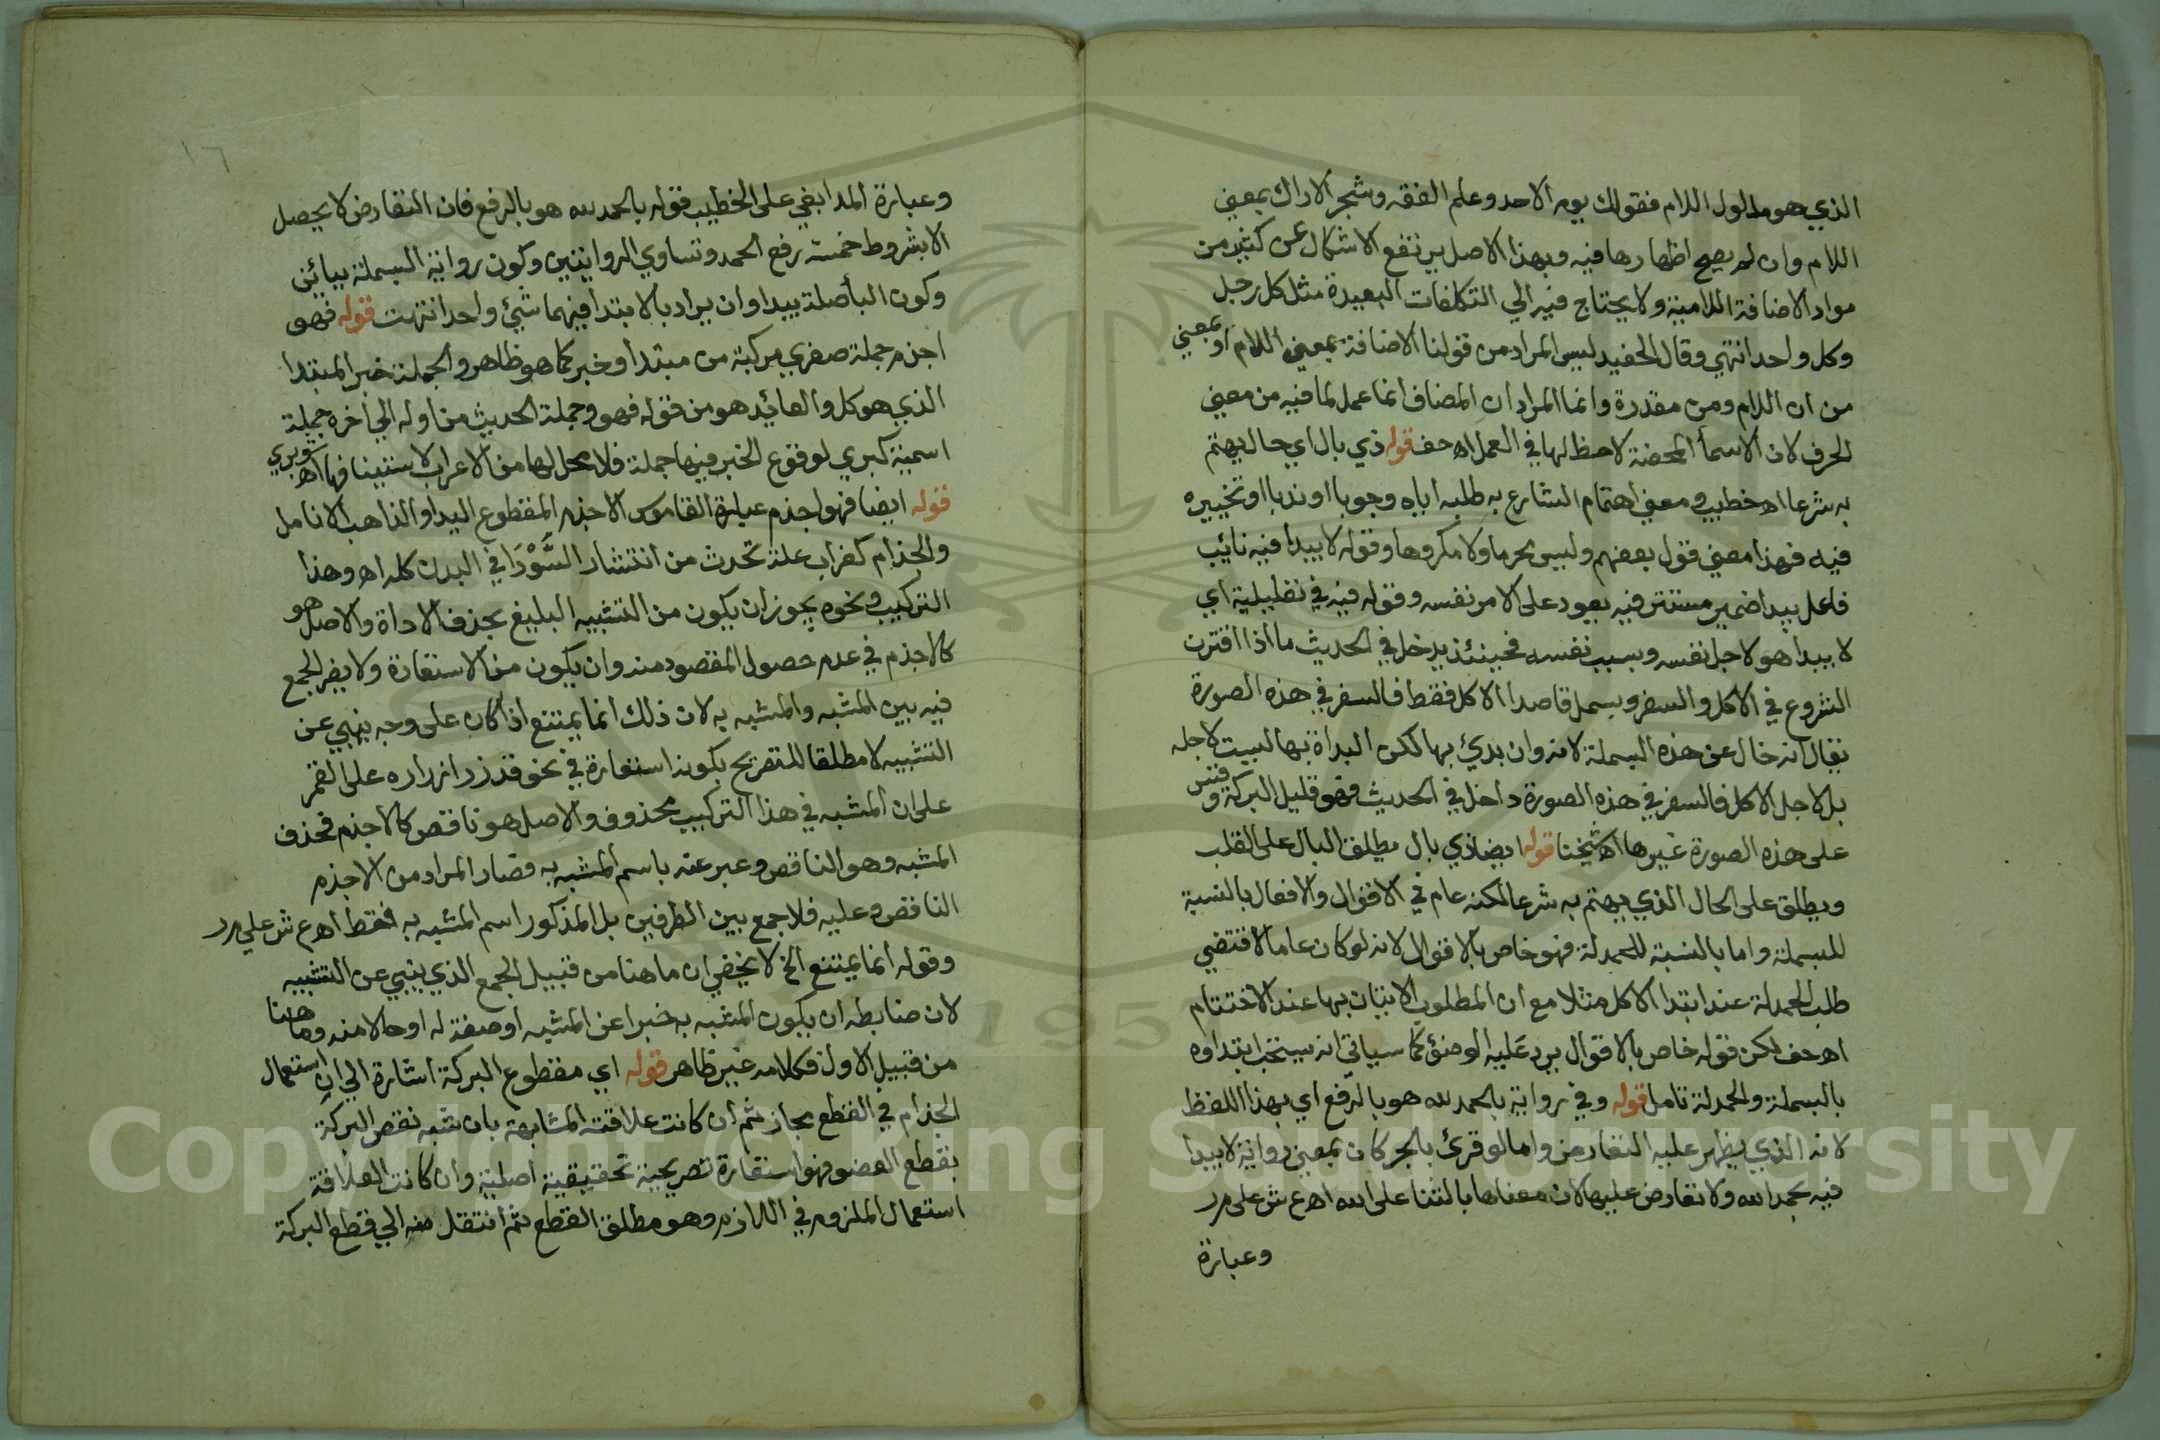 الذي هو مدلول اللام فقولك يوم الاحد وعلم الفقه وشجر الاراك بمعني
اللام وان لم يصح اظهارها فيه وبهذا الاصل يرتفع الاشكال عن كثير من
مواد الاضافة اللامية ولا يحتاج فيه الي التكلفات البعيدة مثل كل رجل
وكل واحد انتهي وقال الحفيد ليس المراد من قولنا الاضافة بمعني اللام او بمعني
من ان اللام ومن مقدرة وانما المراد ان المضاف انما عمل لما فيه من معني
الحرف لان الاسما المحضة لاحظ لها في العمل اهـ حف قوله ذي بال اي حال يهتم
به شرعا اهـ خطيب ومعني اهتمام الشارع به طلبه اياه وجوبا او ندبا او تخييره
فيه فهذا معني قول بعضهم وليس محرما ولا مكروها وقوله لا يبدا فيه نائب
فاعل يبدا ضمير مستتر فيه يعود علي الامر نفسه وقوله فيه في تعليلية اي
لا يبدا هو لاجل نفسه وبسبب نفسه فحينئذ يدخل في الحديث ما اذا اقترن
الشروع في الاكل والسفر وبسمل قاصدا الاكل فقط فالسفر في هذه الصورة
يقال انه خال عن هذه البسملة لانه وان بدئ بها لكن البداة بها ليست لاجله
بل لاجل الاكل فالسفر في هذه الصورة داخل في الحديث فهو قليل البركة وقس
على هذه الصورة غيرها اهـ شيخنا قوله ايضا ذي بال يطلق البال على القلب
ويطلق على الحال الذي يهتم به شرعا لكنه عام في الاقوال والافعال بالنسبة
للبسملة واما بالنسبة للحمدلة فهو خاص بالاقوال لانه لو كان عاما لاقتضي
طلب الحمدلة عند ابتدا الاكل مثلا مع ان المطلوب الاتيان بها عند الاختتام
اهـ حف لكن قوله خاص بالاقوال يرد عليه الوضؤ كما سياتي انه يستحب ابتداوه
بالبسملة والحمدلة تامل قوله وفي رواية بالحمد لله هو بالرفع اي بهذا اللفظ
لانه الذي يظهر عليه التعارض واما لو قرئ بالجر كان بمعني رواية لا يبدا
فيه بحمد الله ولا تعارض عليها لان معناها بالثنا على الله اهـ ع ش على م ر
وعبارة
١٦
وعبارة المدابغي على الخطيب قوله بالحمد لله هو بالرفع فان التعارض لا يحصل
الا بشروط خمسة رفع الحمد وتساوي الروايتين وكون رواية البسملة بيائين
وكون البا صلة يبدا وان يراد بالابتدا فيهما شيئ واحد انتهت قوله فهو
اجذم جملة صغري مركبة من مبتدا وخبر كما هو ظاهر والجملة خبر المبتدا
الذي هو كل والعائد هو من قوله فهو وجملة الحديث من اوله الي اخره جملة
اسمية كبري لوقوع الخبر فيها جملة فلا محل لها من الاعراب لاستينافها اهـ
قوله ايضا فهو اجذم عبارة القاموس الاجذم المقطوع اليد او الذاهب الانامل
والجذام كغراب علة تحدث من انتشار السَّوْدَا في البدن كله اهـ وهذا
التركيب ونحوه يجوز ان يكون من التشبيه البليغ بحذف الاداة والاصل هو
كالاجذم في عدم حصول المقصود منه وان يكون من الاستعارة ولا يضر الجمع
فيه بين المشبه والمشبه به لان ذلك انما يمتنع اذا كان على وجه ينبي عن
التشبيه لا مطلقا للتصريح بكونه استعارة في نحو قد زر ازراره على القمر
على ان المشبه في هذا التركيب محذوف والاصل هو ناقص كالاجذم فحذف
المشبه وهو الناقص وعبر عنه باسم المشبه به فصار المراد من الاجذم
الناقص وعليه فلا جمع بين الطرفين بل المذكور اسم المشبه به فقط اهـ ع ش علي م ر
وقوله انما يمتنع الخ لا يخفي ان ما هنا من قبيل الجمع الذي ينبي عن التشبيه
لان ضابطه ان يكون المشبه به خبرا عن المشبه او صفة له او حالا منه وما هنا
من قبيل الاول فكلامه غير ظاهر قوله اي مقطوع البركة اشارة الي ان استعمال
الجذام في القطع مجاز ثم ان كانت علاقته المشابهة بان شبه نقص البركة
بقطع العضو فهو استعارة تصريحية تحقيقية اصلية وان كانت العلاقة
استعمال الملزوم في اللازم وهو مطلق القطع ثم انتقل منه الي قطع البركة
Copyright © King Saud University
1957